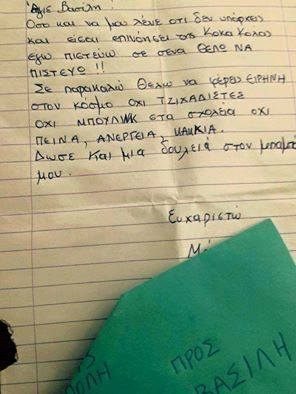 Άγιε Βασίλη
Οσο και να μου λένε οτι δεν υπάρχεις
και είσαι επινόησει της Κοκα Κολας
εγω πιστεύω σε σενα ΘΕΛΩ ΝΑ
ΠΙΣΤΕΥΩ !!
Σε παρακαλώ θελω να φέρεις ΕΙΡΗΝΗ
στον κόσμο ΟΧΙ ΤΖΙΧΑΔΙΣΤΕΣ
ΟΧΙ ΜΠΟΥΛΙΝΚ στα σχολεία ΟΧΙ
ΠΕΙΝΑ, ΑΝΕΡΓΕΙΑ, ΚΑΚΚΙΑ.
Δωσε και μια δουλειά στον μπαμπά
μου.
Ευχαριστώ
ΠΡΟΣ
ΒΑΣΙΛΗ